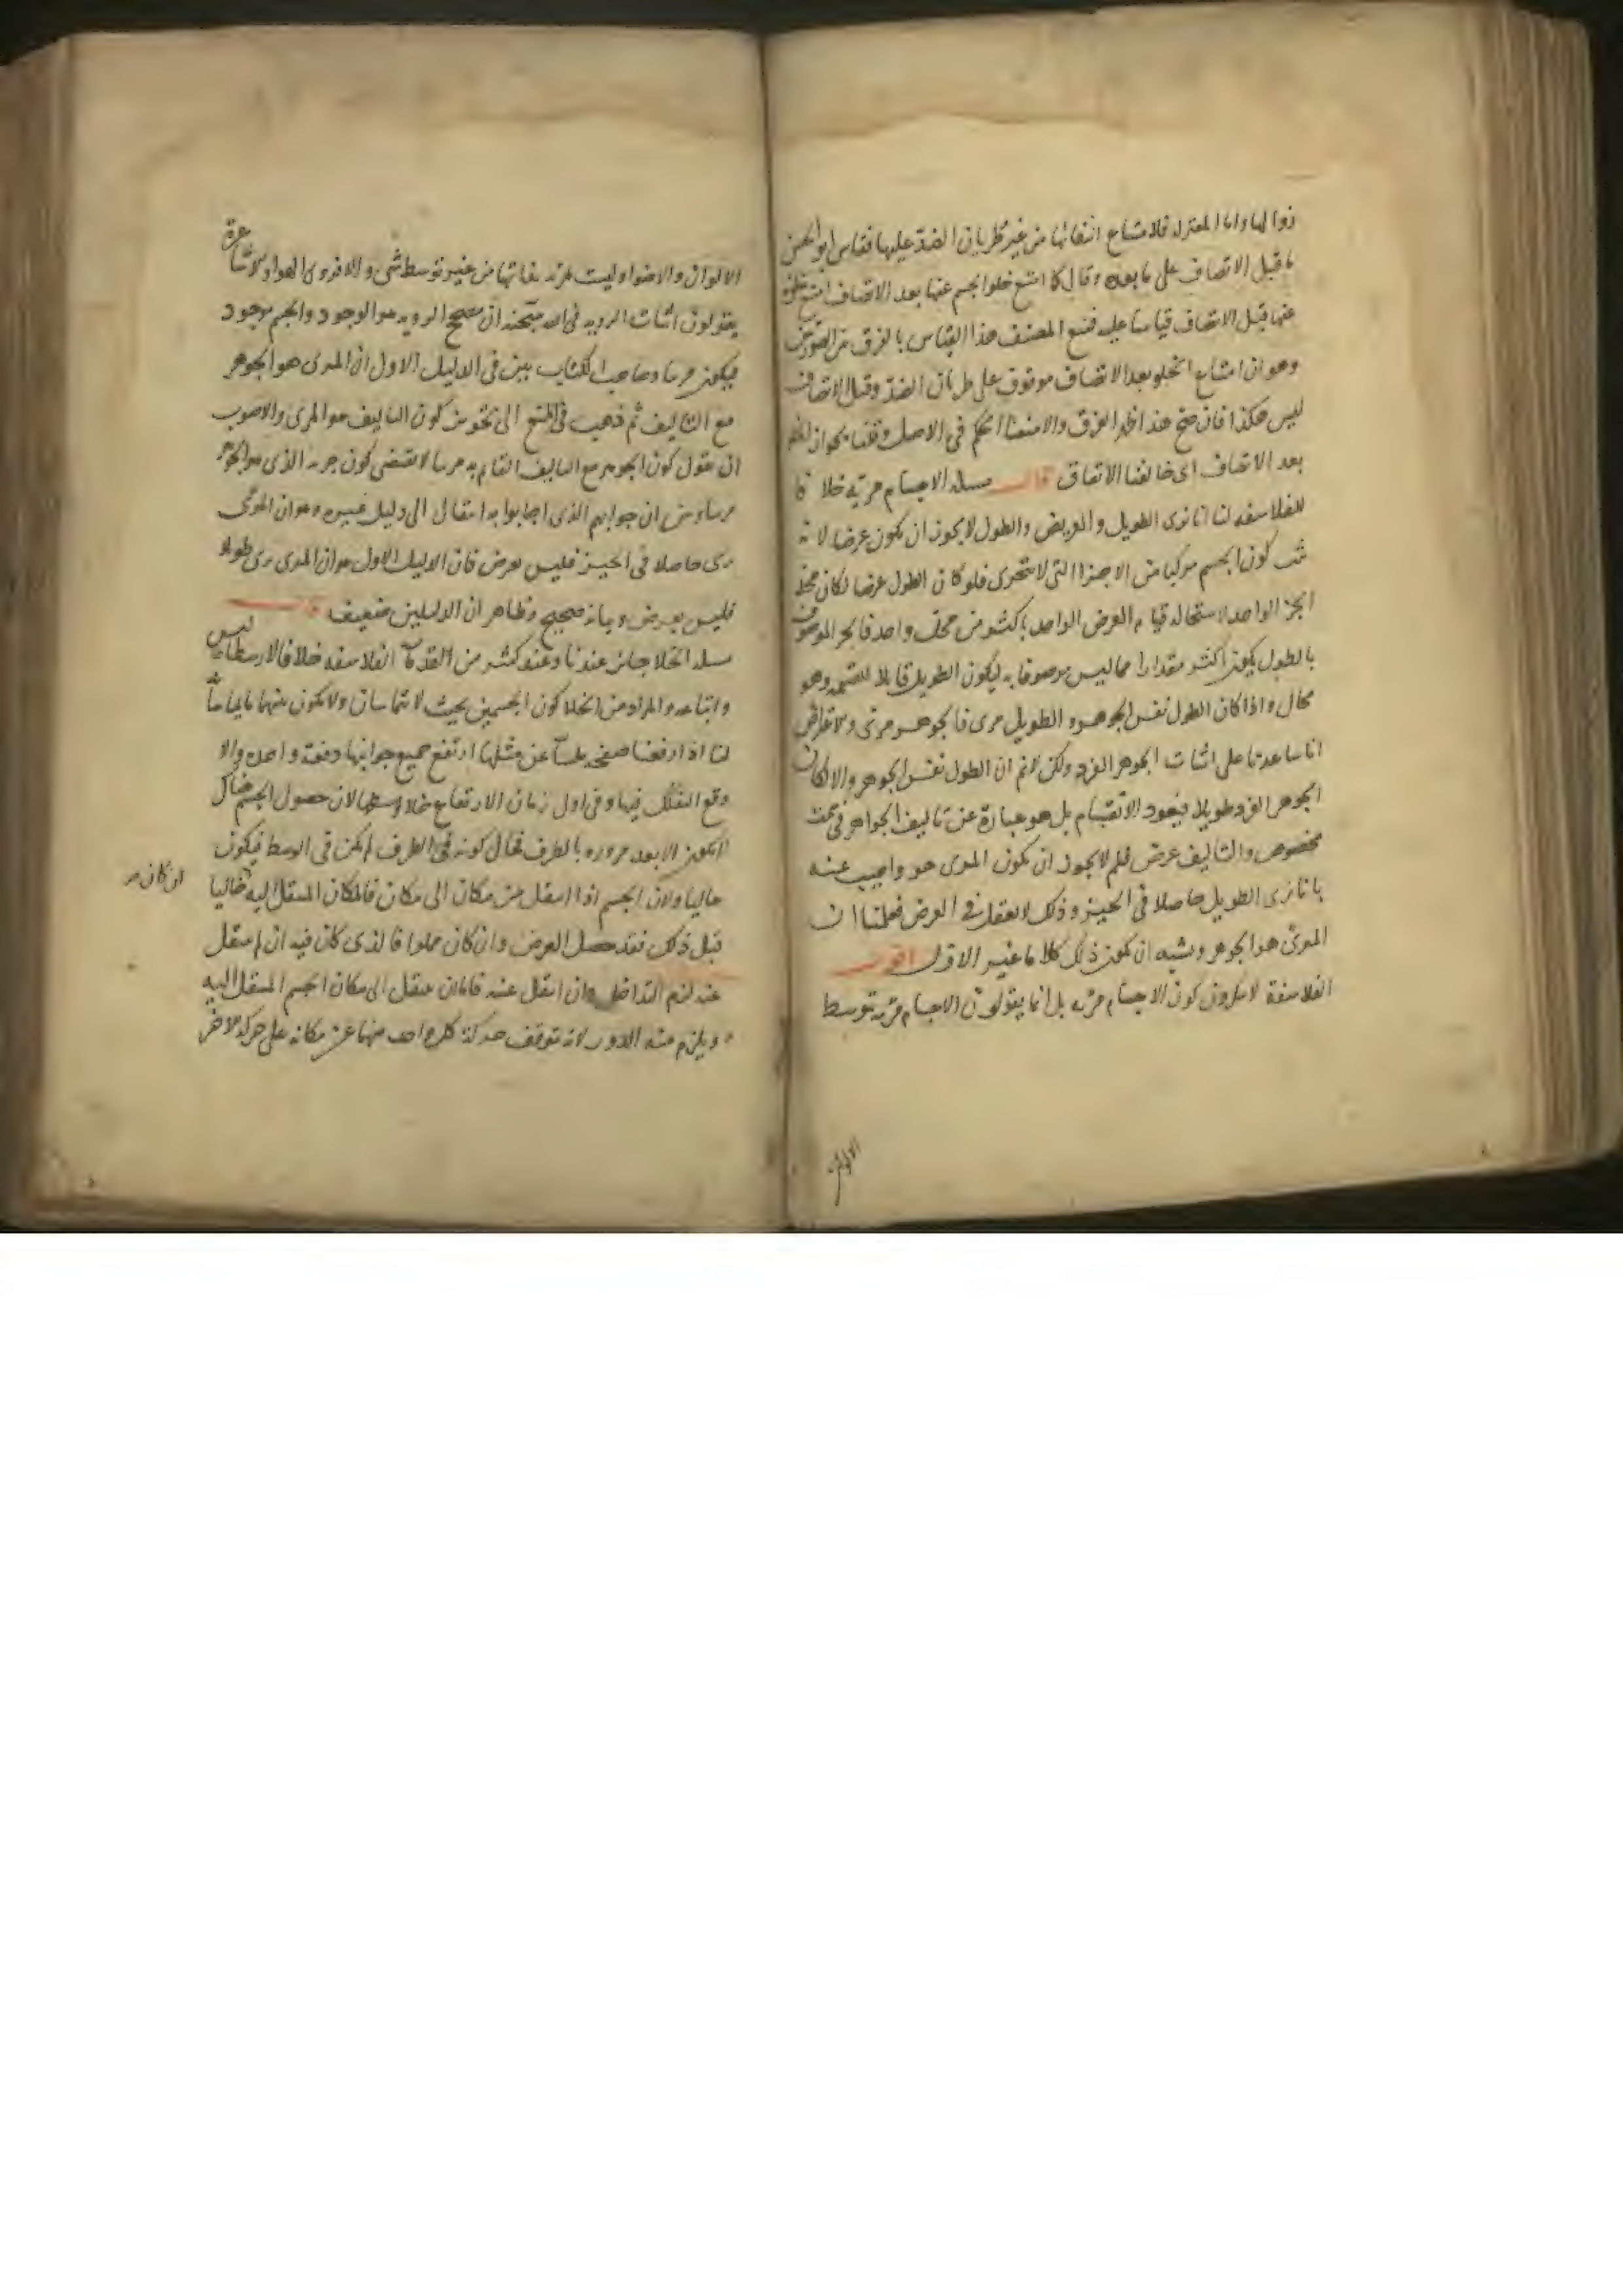 زوالها واما المعتزله فلامتناع انتفائها من غير طريان الضد عليها فقاس ابو الحسن
ما قبل الاتصاف على ما بعده وقال كما امتنع خلو الجسم عنها بعد الاتصاف امتنع خلوه
عنها قبل الاتصاف قياسا عليه فمنع المصنف هذا القياس بالفرق بين الصورتين
وهو ان امتناع الخلو بعد الاتصاف موقوف على طريان الضد وقبل الاتصاف
ليس هكذا فان صح هذا ظهر الفرق والا منعنا الحكم في الاصل وقلنا بجواز الخلو
بعد الاتصاف اى خالفنا الاتفاق قال مسله الاجسام مرئيه خلافا
للفلاسفه لنا انا نرى الطويل والعريض والطول لا يجوز ان يكون عرضا لانه
ثبت كون الجسم مركبا من الاجزا التى لا تتجزى فلو كان الطول عرضا لكان محله
الجز الواحد لاستحاله قيام العرض الواحد باكثر من محل واحد فالجز الموصوف
بالطول يكون اكثر مقدارا مما ليس موصوفا به ليكون الطويل قابلا للقسمه وهو
محال واذا كان الطول نفس الجوهر والطويل مرى فالجوهر مرئى ولاعتراض
انا ساعدنا على اثبات الجوهر الفرد ولكن لانم ان الطول نفس الجوهر والا لكان
الجوهر الفرد طويلا فيعود الانقسام بل هو عبارة عن تاليف الجواهر فى سمت
مخصوص والتاليف عرض فلم لا يجوز ان يكون المرى هو واجيب عنه
بانا نرى الطويل حاصلا فى الحيز وذلك لا يعقل فى العرض فعلمنا ان
المرئ هو الجوهر ويشبه ان يكون ذلك كلاما غير الاول اقول
الفلاسفة لا ينكرون كون الاجسام مرئيه بل انما يقولون الاجسام مرئيه بتوسط
الالوان
الالوان والاضواء وليست بمرئيه بذاتها من غير توسط شى والا فرؤى الهواء والاشاعرة
يقولون اثبات الرويه فى الله سبحنه ان مصحح الرويه هو الوجود والجسم موجود
فيكون مرئيا وصاحب الكتاب بين فى الدليل الاول ان المرى هو الجوهر
مع التاليف ثم ذهب فى المنع الى تجويز كون التاليف هو المرى والاصوب
ان يقول كون الجوهر مع التاليف القائم به مرئيا لا يقتضى كون جزئه الذى هو الجوهر
مرئيا وبين ان جوابهم الذى اجابوا به انتقال الى دليل غيره وهو ان المرئى
يرى حاصلا فى الحيز فليس بعرض فان الدليل الاول هو ان المرى يرى طويلا
فليس بعرض وبيانه صحيح وظاهر ان الدليلين ضعيف قال
مسله الخلا جائز عندنا وعند كثير من القدماء الفلاسفه خلافا لارسطاطاليس
واتباعه والمراد من الخلا كون الجسمين بحيث لا يتماسان ولا يكون بينهما ما يماسانه
لنا اذا رفعنا صفحه ملساء عن مثلها ارتفع جميع جوانبها دفعة واحده والا
وقع التفكك فيها وفى اول زمان الارتفاع خلا وسطها لان حصول الجسم هناك
لا يكون الا بعد مروره بالطرف فحال كونه فى الطرف لم يكن فى الوسط فيكون
خاليا ولان الجسم اذا انتقل من مكان الى مكان فالمكان المنتقل اليه خاليا
ان كان
قبل ذلك فقد حصل الغرض وان كان مملوا فالذى كان فيه ان لم ينتقل
عنه لزم التداخل وان انتقل عنه فاما ان ينتقل الى مكان الجسم المنتقل اليه
ويلزم منه الدور لانه توقف حركة كل واحد منهما عن مكانه على حركه الاخر